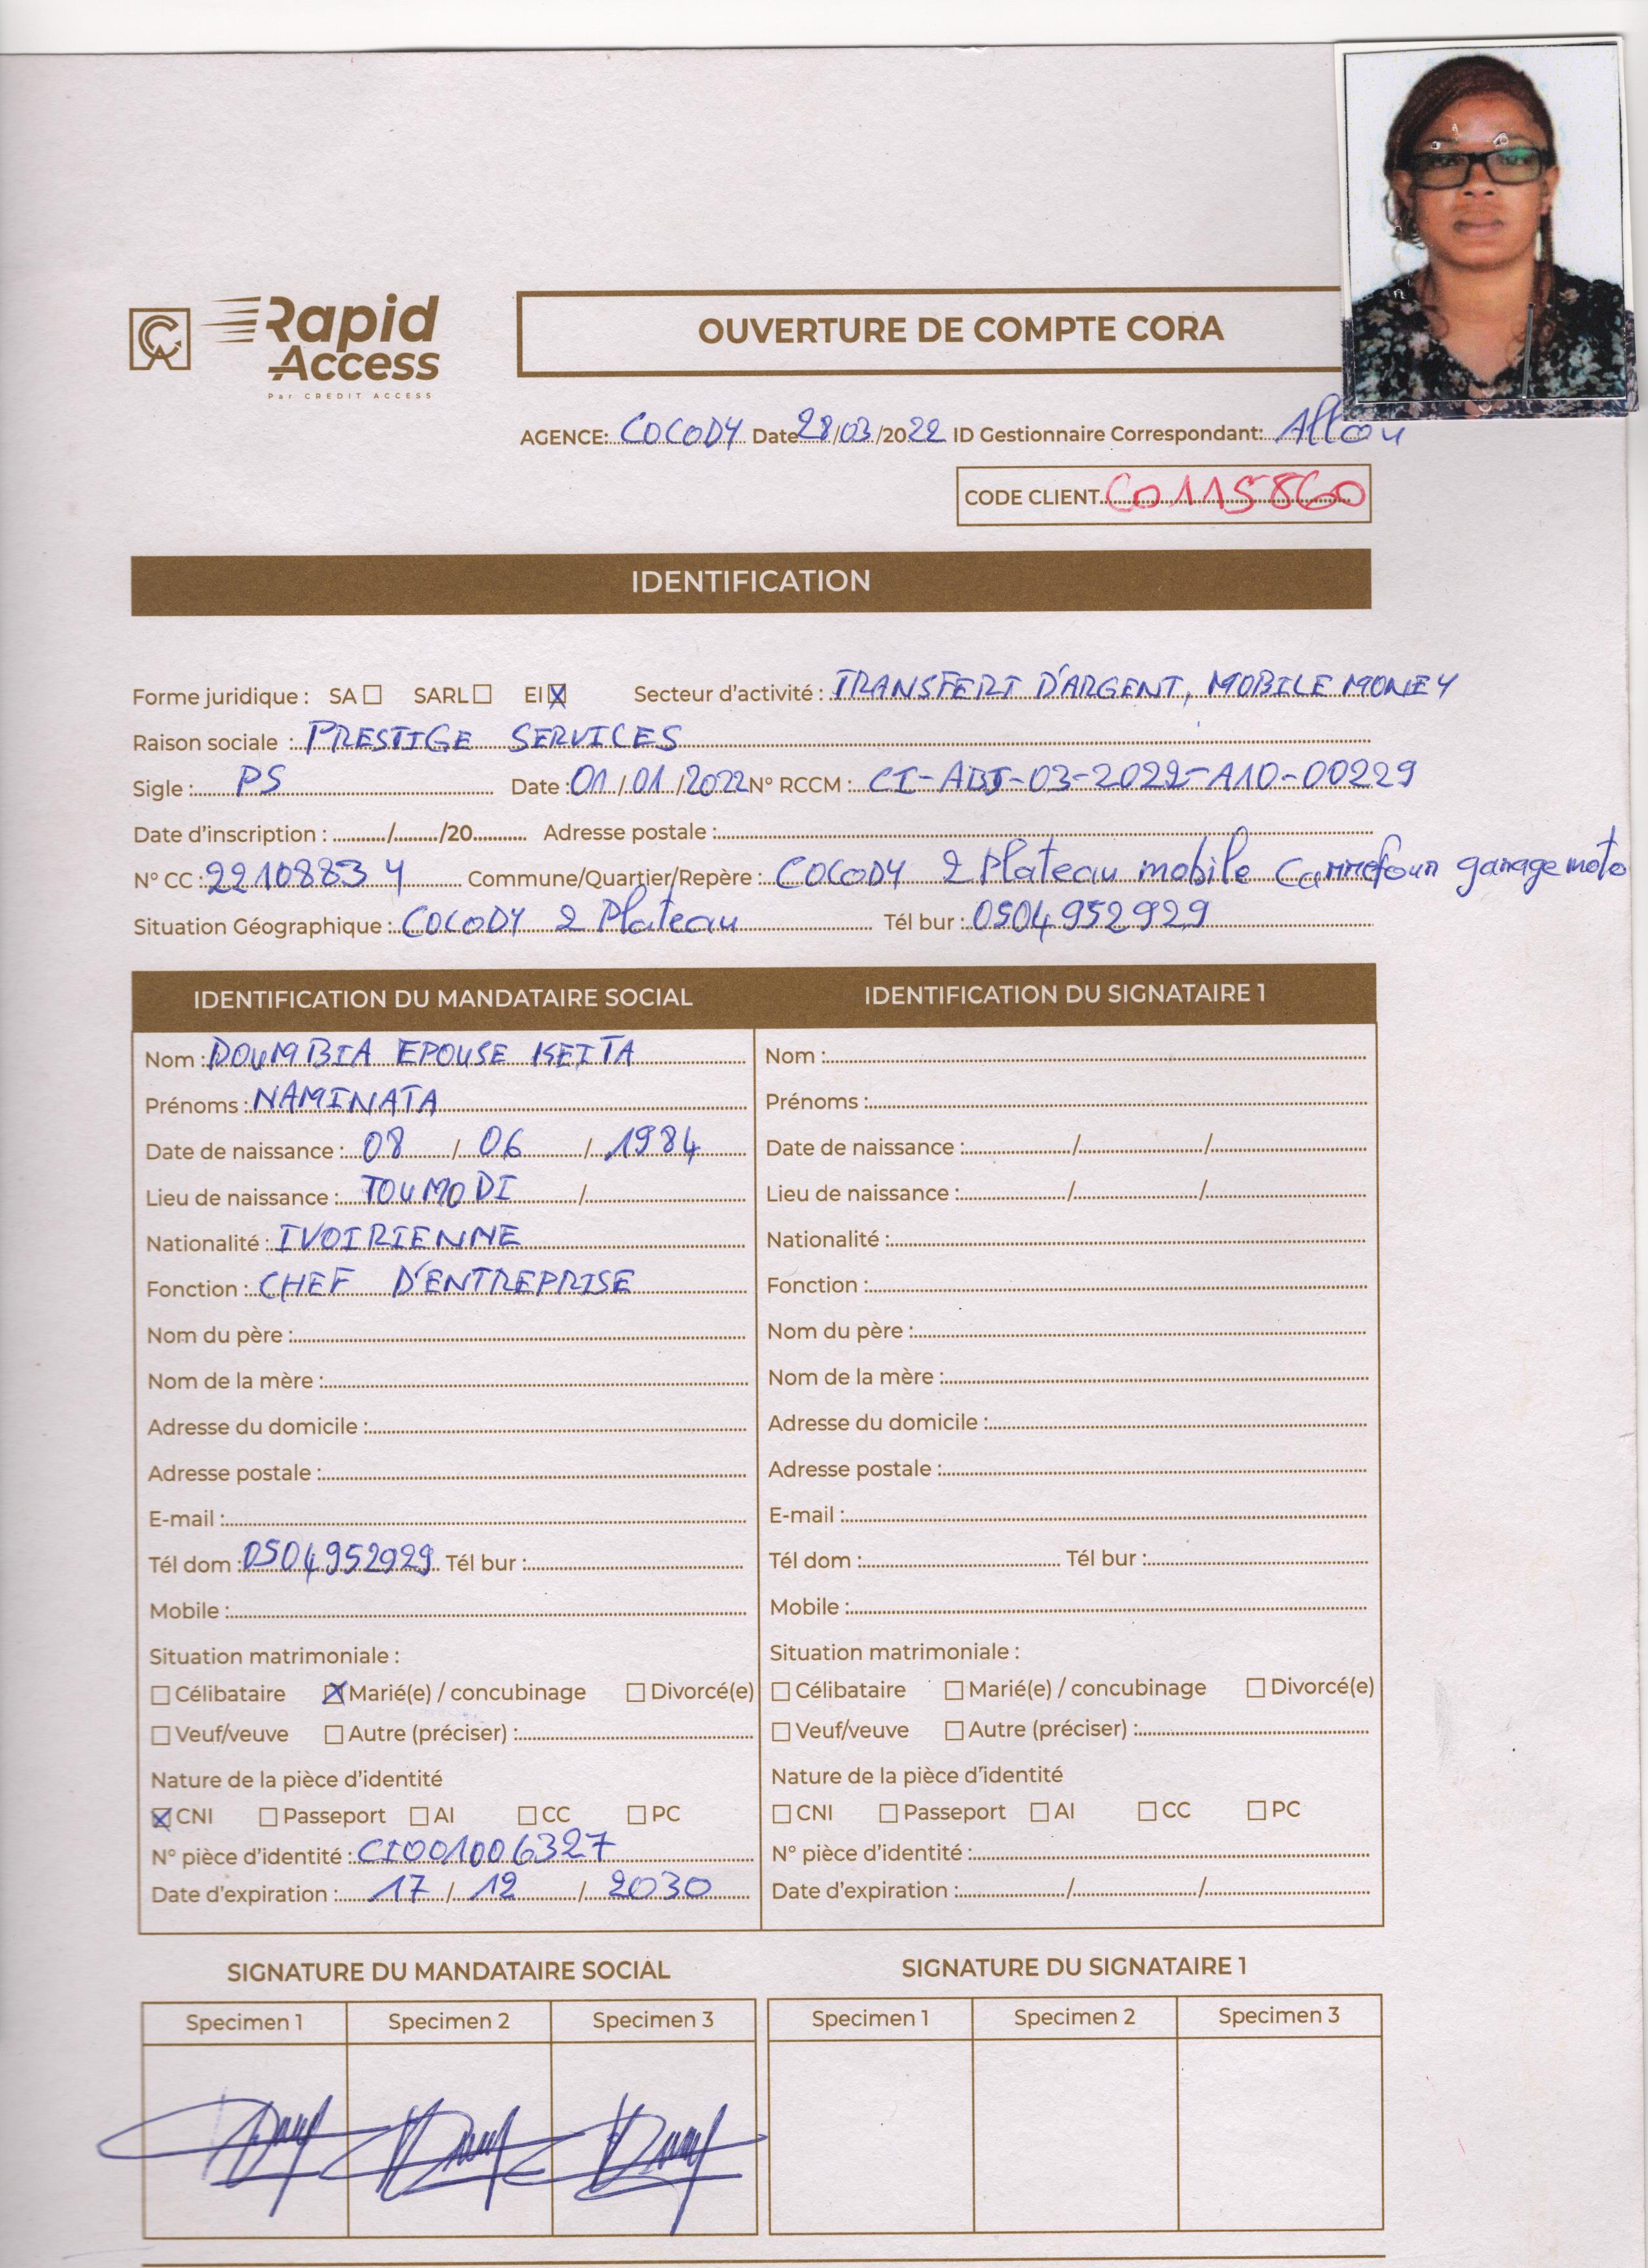 Rapid
Access
Par CREDIT ACCESS
OUVERTURE DE COMPTE CORA
AGENCE: COCODY Date 28/03/2022 ID Gestionnaire Correspondant:
CODE CLIENT CO115860
IDENTIFICATION
Forme juridique : SA ☐ SARL ☐ EI ☒ Secteur d'activité : TRANSFERT D'ARGENT, MOBILE MONEY
Raison sociale : PRESTIGE SERVICES
Sigle : PS Date : 01/01/2022 N° RCCM : CI-ABJ-03-2022-A10-00229
Date d'inscription : ........../......../20.......... Adresse postale :
N° CC : 2210883 Y Commune/Quartier/Repère : COCODY 2 Plateau mobile Carrefour garage moto
Situation Géographique : COCODY 2 Plateau Tél bur : 0504952929
IDENTIFICATION DU MANDATAIRE SOCIAL
Nom : DOUMBIA EPOUSE KEITA
Prénoms : NAMINATA
Date de naissance : 08 / 06 / 1984
Lieu de naissance : TOUMODI /
Nationalité : IVOIRIENNE
Fonction : CHEF D'ENTREPRISE
Nom du père :
Nom de la mère :
Adresse du domicile :
Adresse postale :
E-mail :
Tél dom : 0504952929 Tél bur :
Mobile :
Situation matrimoniale :
☐ Célibataire ☒ Marié(e) / concubinage ☐ Divorcé(e)
☐ Veuf/veuve ☐ Autre (préciser) :
Nature de la pièce d'identité
☒ CNI ☐ Passeport ☐ AI ☐ CC ☐ PC
N° pièce d'identité : CI001006327
Date d'expiration : 17 / 12 / 2030
IDENTIFICATION DU SIGNATAIRE 1
Nom :
Prénoms :
Date de naissance : / /
Lieu de naissance : / /
Nationalité :
Fonction :
Nom du père :
Nom de la mère :
Adresse du domicile :
Adresse postale :
E-mail :
Tél dom : Tél bur :
Mobile :
Situation matrimoniale :
☐ Célibataire ☐ Marié(e) / concubinage ☐ Divorcé(e)
☐ Veuf/veuve ☐ Autre (préciser) :
Nature de la pièce d'identité
☐ CNI ☐ Passeport ☐ AI ☐ CC ☐ PC
N° pièce d'identité :
Date d'expiration : / /
SIGNATURE DU MANDATAIRE SOCIAL
Specimen 1 Specimen 2 Specimen 3
SIGNATURE DU SIGNATAIRE 1
Specimen 1 Specimen 2 Specimen 3